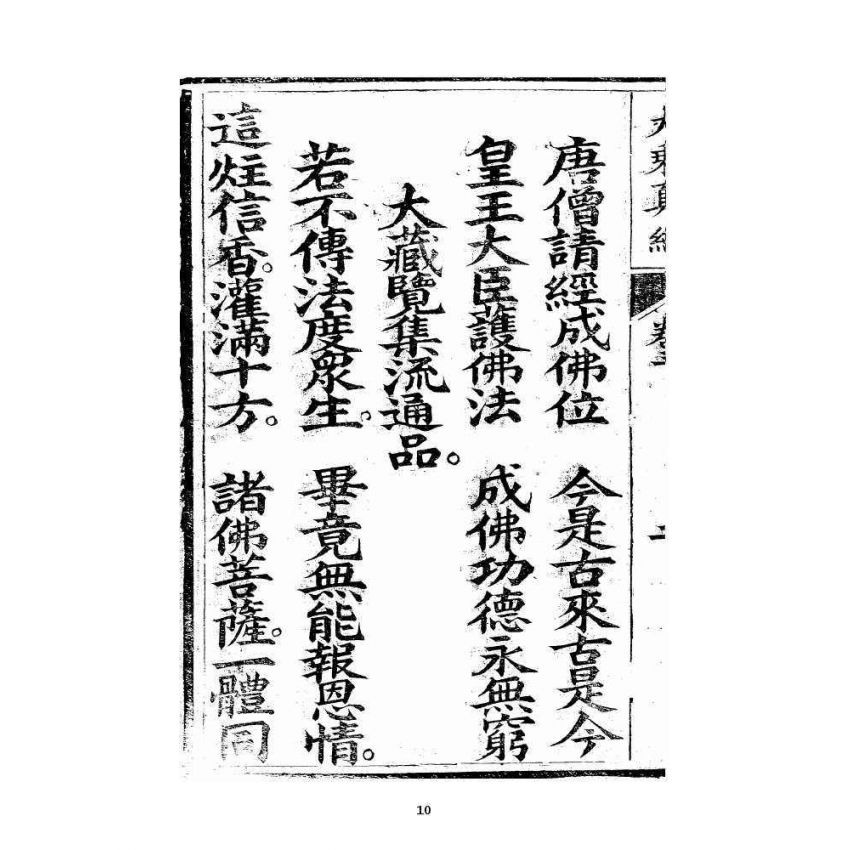 大乘真經
卷三
唐僧請經成佛位　今是古來古是今
皇王大臣護佛法　成佛功德永無窮
大藏覽集流通品。
若不傳法度眾生。畢竟無能報恩情。
這炷信香。灌滿十方。諸佛菩薩。一體同
10